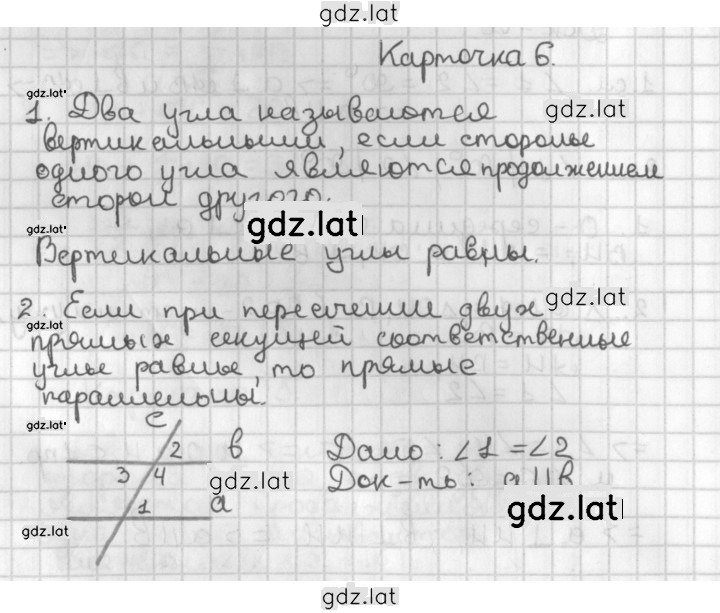 gdz.lat
Карточка 6.
gdz.lat
1. Два угла называются
gdz.lat
вертикальными, если стороны
одного угла являются продолжением
сторон другого.
gdz.lat
Вертикальные углы равны.
gdz.lat
2. Если при пересечении двух
gdz.lat
gdz.lat
прямых секущей соответственные
углы равны, то прямые
параллельны.
gdz.lat
c
2 в
Дано: ∠1 = ∠2
3 4
gdz.lat
Док-ть: a || в
1 a
gdz.lat
gdz.lat
gdz.lat